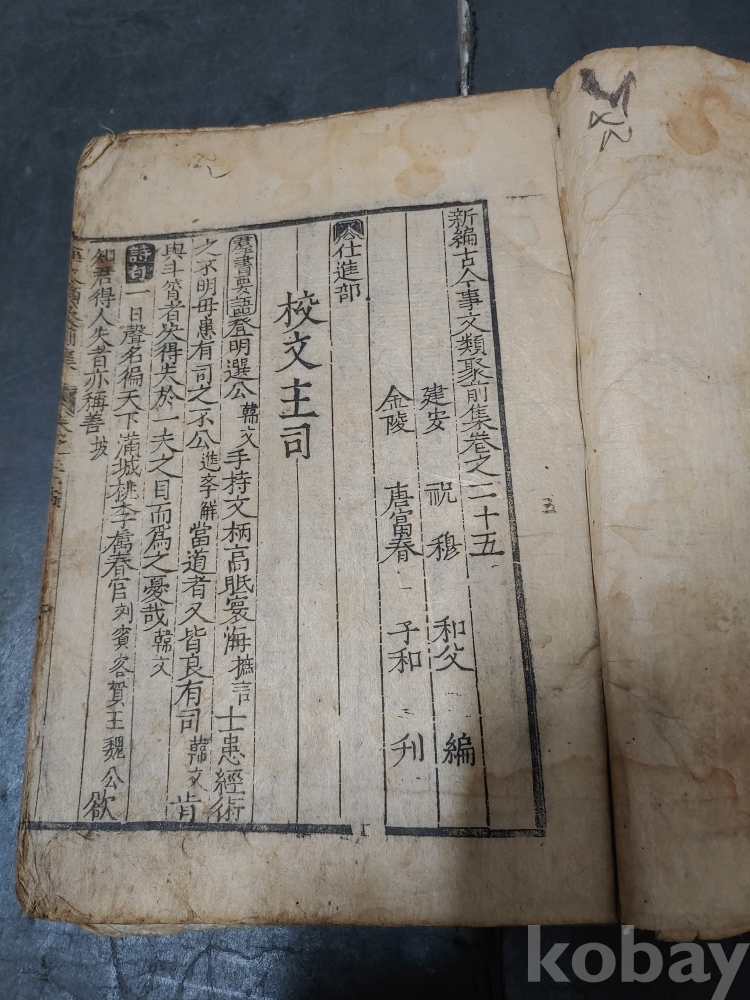 新編古今事文類聚前集卷之二十五
建安 祝 穆 和父 編
金陵 唐富春 子和 刋
仕進部
校文主司
羣書要語登明選公韓文手持文柄高眡寰海摭言士患經術
之不明毋患有司之不公進李解當道者又皆良有司韓文肯
與斗筲者決得失於一夫之目而爲之憂哉韓文
詩句一日聲名徧天下滿城桃李舊春官刘賓客賀王魏公欲
知君得人失者亦稱善坡
kobay